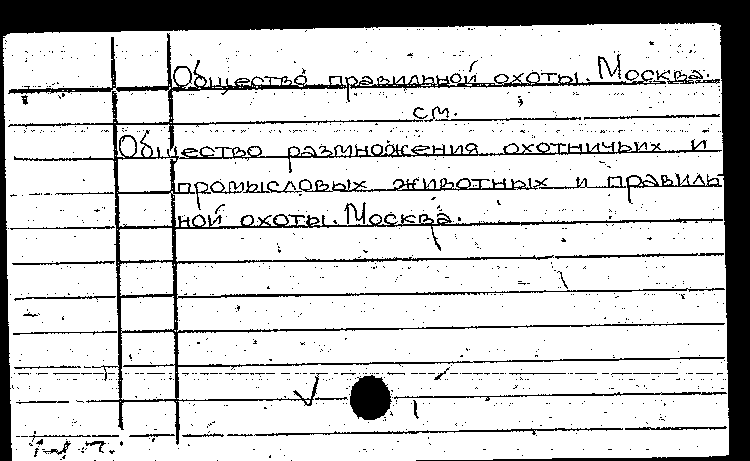 Общество правильной охоты. Москва.
см.
Общество размножения охотничьих и
промысловых животных и правиль
ной охоты. Москва.